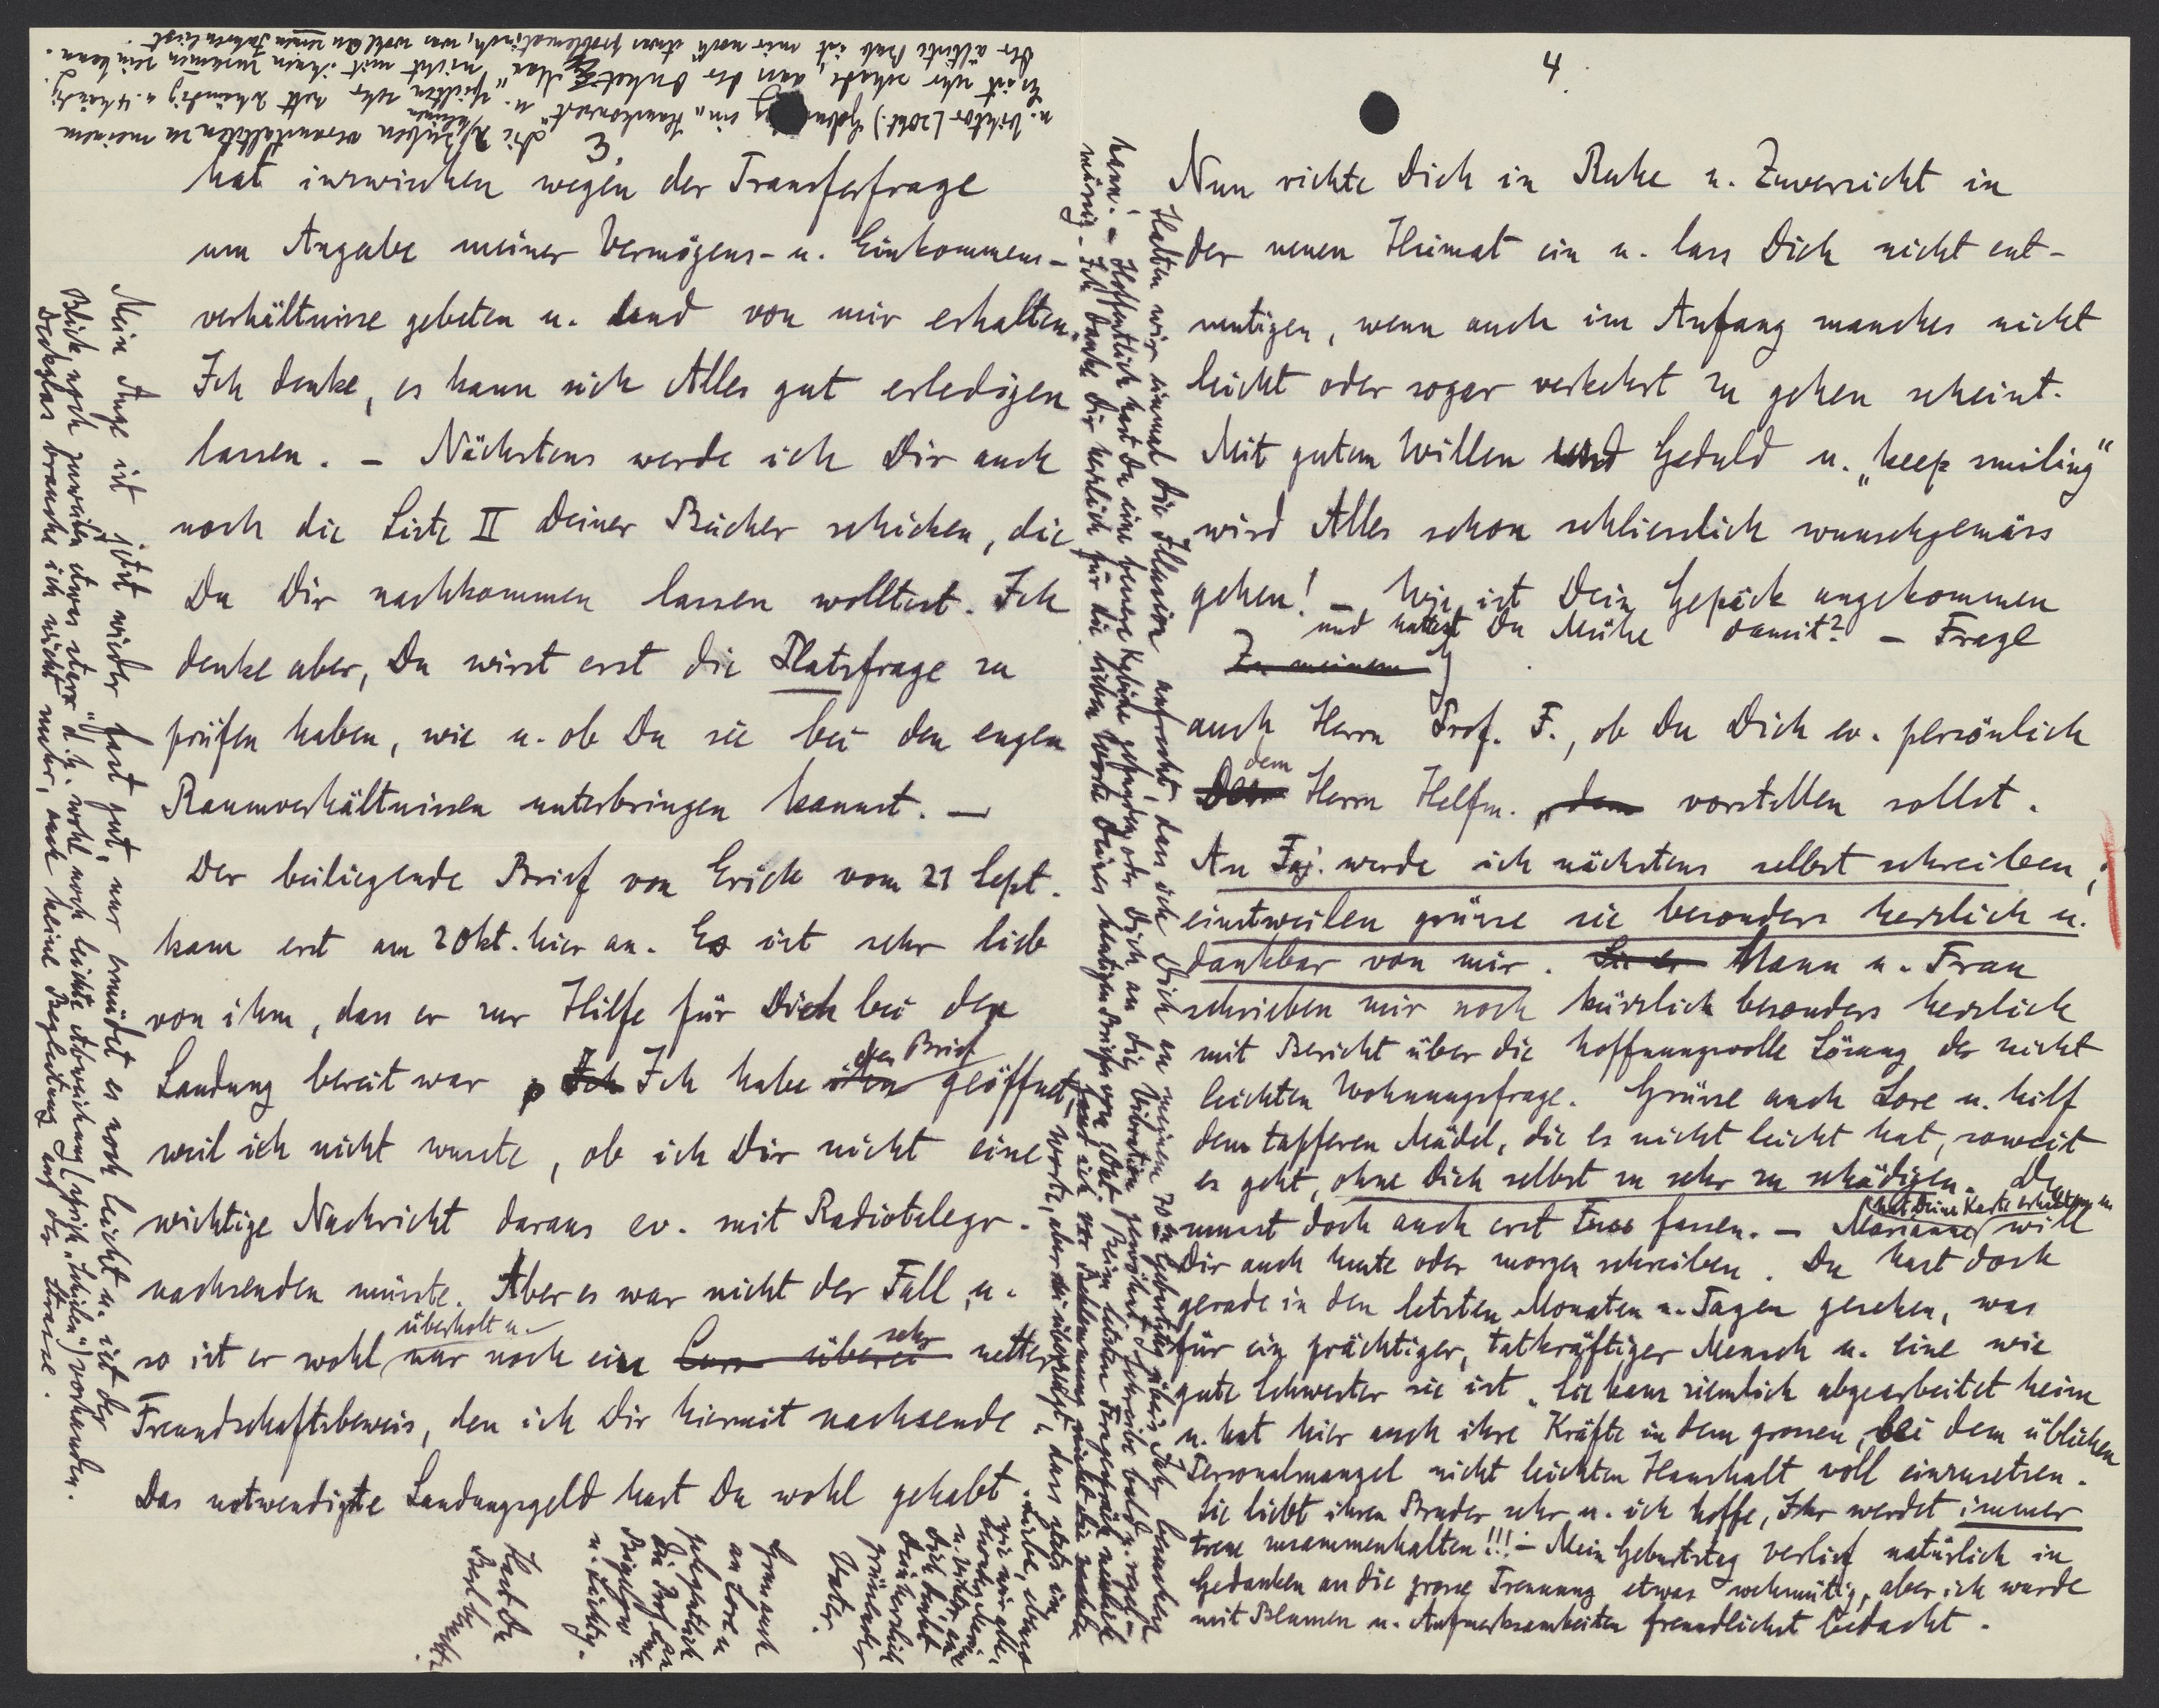 3.
hat inzwischen wegen der Transferfrage
um Angabe meiner Vermögens- u. Einkommens-
verhältnisse gebeten u. von mir erhalten.
Ich denke, es kann sich Alles gut erledigen
lassen. – Nächstens werde ich Dir auch
noch die Liste II Deiner Bücher schicken, die
Du Dir nachkommen lassen wolltest. Ich
denke aber, Du wirst erst die Platzfrage zu
prüfen haben, wie u. ob Du sie bei den engen
Raumverhältnissen unterbringen kannst. –
Der beiliegende Brief von Erich vom 21 Sept.
kam erst am 2 Okt. hier an. Es ist sehr lieb
von ihm, dass er zur Hilfe für Dich bei der
Landung bereit war Ich Ich habe den Brief geöffnet,
weil ich nicht wusste, ob ich Dir nicht eine
wichtige Nachricht daraus ev. mit Radiotelegr.
nachsenden müsste. Aber es war nicht der Fall, u.
überholt u.
so ist er wohl nur noch ein sehr netter
Freundschaftsbeweis, den ich Dir hiermit nachsende
Das notwendigste Landungsgeld hast Du wohl gehabt.
Mein Auge ist jetzt wieder fast gut, nur ermüdet es noch leicht u. ist der
Blick noch zuweilen etwas "starr" d.h. wohl noch leichte Abweichung (sprich "Schielen") vorhanden.
Deckglas brauche ich nicht mehr, auch keine Begleitung auf der Strasse.
Die Buben veranstalteten zu meinem
u. Viktor (2 Okt.) Geburtstag ein "Hauskonzert" u. spielten sehr nett 2händig u. 4händig.
Es ist sehr schade, dass der Onkel Max nicht mit ihnen zusammen sein kann.
Der älteste Bub ist mir noch etwas problematisch, was wohl an seinen Jahren liegt.
4.
Nun richte Dich in Ruhe u. Zuversicht in
der neuen Heimat ein u. lass Dich nicht ent-
mutigen, wenn auch im Anfang manches nicht
leicht oder sogar verkehrt zu gehen scheint.
Mit gutem Willen und Geduld u. "keep smiling"
wird Alles schon schliesslich wunschgemäss
gehen! – Wie ist Dein Gepäck angekommen
und hattest Du Mühe damit? – Frage
Zu meinem
auch Herrn Prof. F., ob Du Dich ev. persönlich
dem
Herrn Helfm. dem vorstellen sollst.
An Faj. werde ich nächstens selbst schreiben,
einstweilen grüsse sie besonders herzlich u.
dankbar von mir. Mann u. Frau
schrieben mir noch kürzlich besonders herzlich
mit Bericht über die hoffnungsvolle Lösung der nicht
leichten Wohnungsfrage. Grüsse auch Lore u. hilf
dem tapferen Mädel, die es nicht leicht hat, soweit
es geht, ohne Dich selbst zu sehr zu schädigen. Du
musst doch auch erst Fuss fassen. – Marianne hat Deine Karte erhalten u. will
Dir auch heute oder morgen schreiben. Du hast doch
gerade in den letzten Monaten u. Tagen gesehen, was
für ein prächtiger, tatkräftiger Mensch u. eine wie
gute Schwester sie ist. Sie kam ziemlich abgearbeitet heim
u. hat hier auch ihre Kräfte in dem grossen, bei dem üblichen
Personalmangel nicht leichten Haushalt voll einzusetzen.
Sie liebt ihren Bruder sehr u. ich hoffe, Ihr werdet immer
treu zusammenhalten!!! – Mein Geburtstag verlief natürlich in
Gedanken an die grosse Trennung etwas wehmütig, aber ich wurde
mit Blumen u. Aufmerksamkeiten freundlichst bedacht.
Halten wir einmal die Illusion aufrecht, dass ich Dich an meinem 70ten Geburtstag übers Jahr besuchen
kann! – Hoffentlich hast Du eine bessere Kabine gefunden oder Dich an die Vibration gewöhnt. Schreibe bald u. regel-
mässig. – Ich danke Dir herzlich für die lieben Worte Deines heutigen Briefes vom
Worte, aber sei überzeugt, dass stets in
Liebe,
wie wir alle,
Dein herzlich
grüssender
Vater.
Gruss auch
an Lore u.
gelegentlich
u. Lichty.
Hast Du